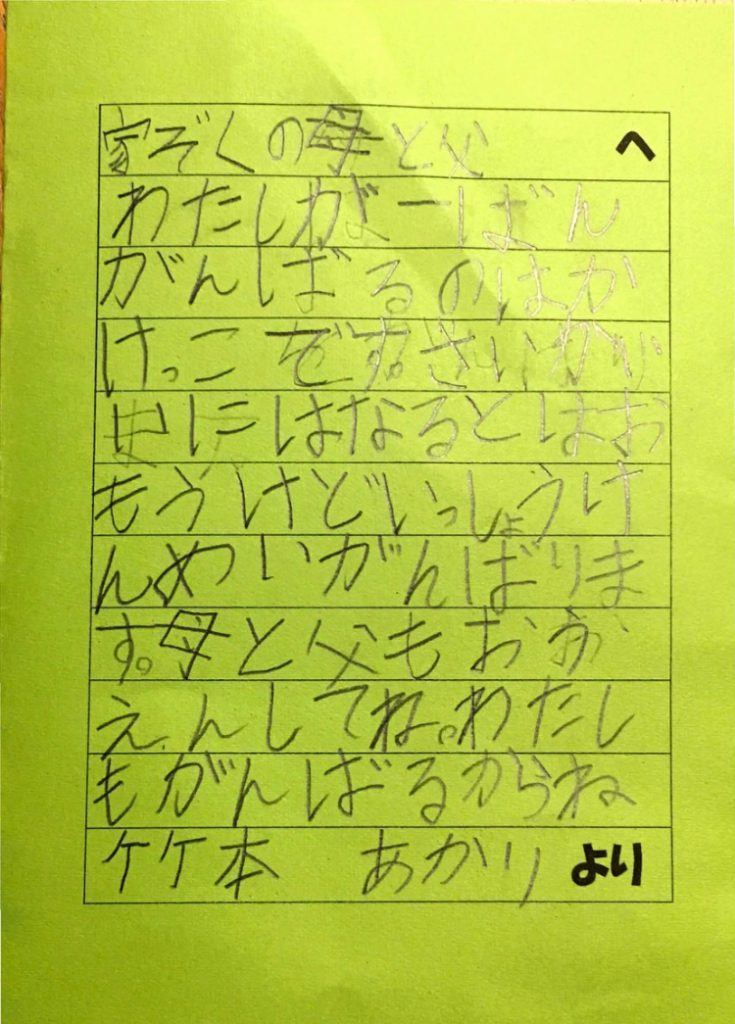 家ぞくの母と父 へ
わたしが一ばん
がんばるのはか
けっこです。さいか
にはなるとはお
もうけどいっしょうけ
んめいがんばりま
す。母と父もおう
えんしてね。わたし
もがんばるからね
竹本 あかり より